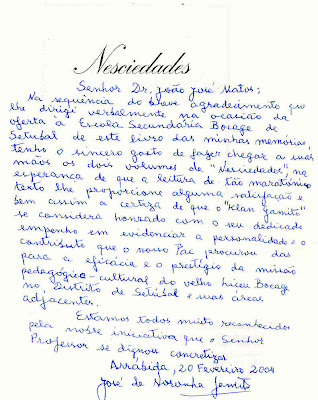 Nesciedades
Senhor Dr. João José Matos:
Na sequência do breve agradecimento que
lhe dirigi verbalmente na ocasião da
oferta à Escola Secundária Bocage de
Setúbal de este livro das minhas memórias,
tenho o sincero gosto de fazer chegar a suas
mãos os dois volumes de "Nesciedades", na
esperança de que a leitura de tão maratónico
texto lhe proporcione alguma satisfação e
bem assim a certeza de que o "Klan Gamito"
se considera honrado com o seu dedicado
empenho em evidenciar a personalidade e o
contributo que o nosso Pai procurou dar
para a eficácia e o prestígio da missão
pedagógico-cultural do velho liceu Bocage
no Distrito de Setúbal e suas áreas
adjacentes.
Estamos todos muito reconhecidos
pela nobre iniciativa que o Senhor
Professor se dignou concretizar
Arrábida, 20 Fevereiro 2004
José de Noronha Gamito